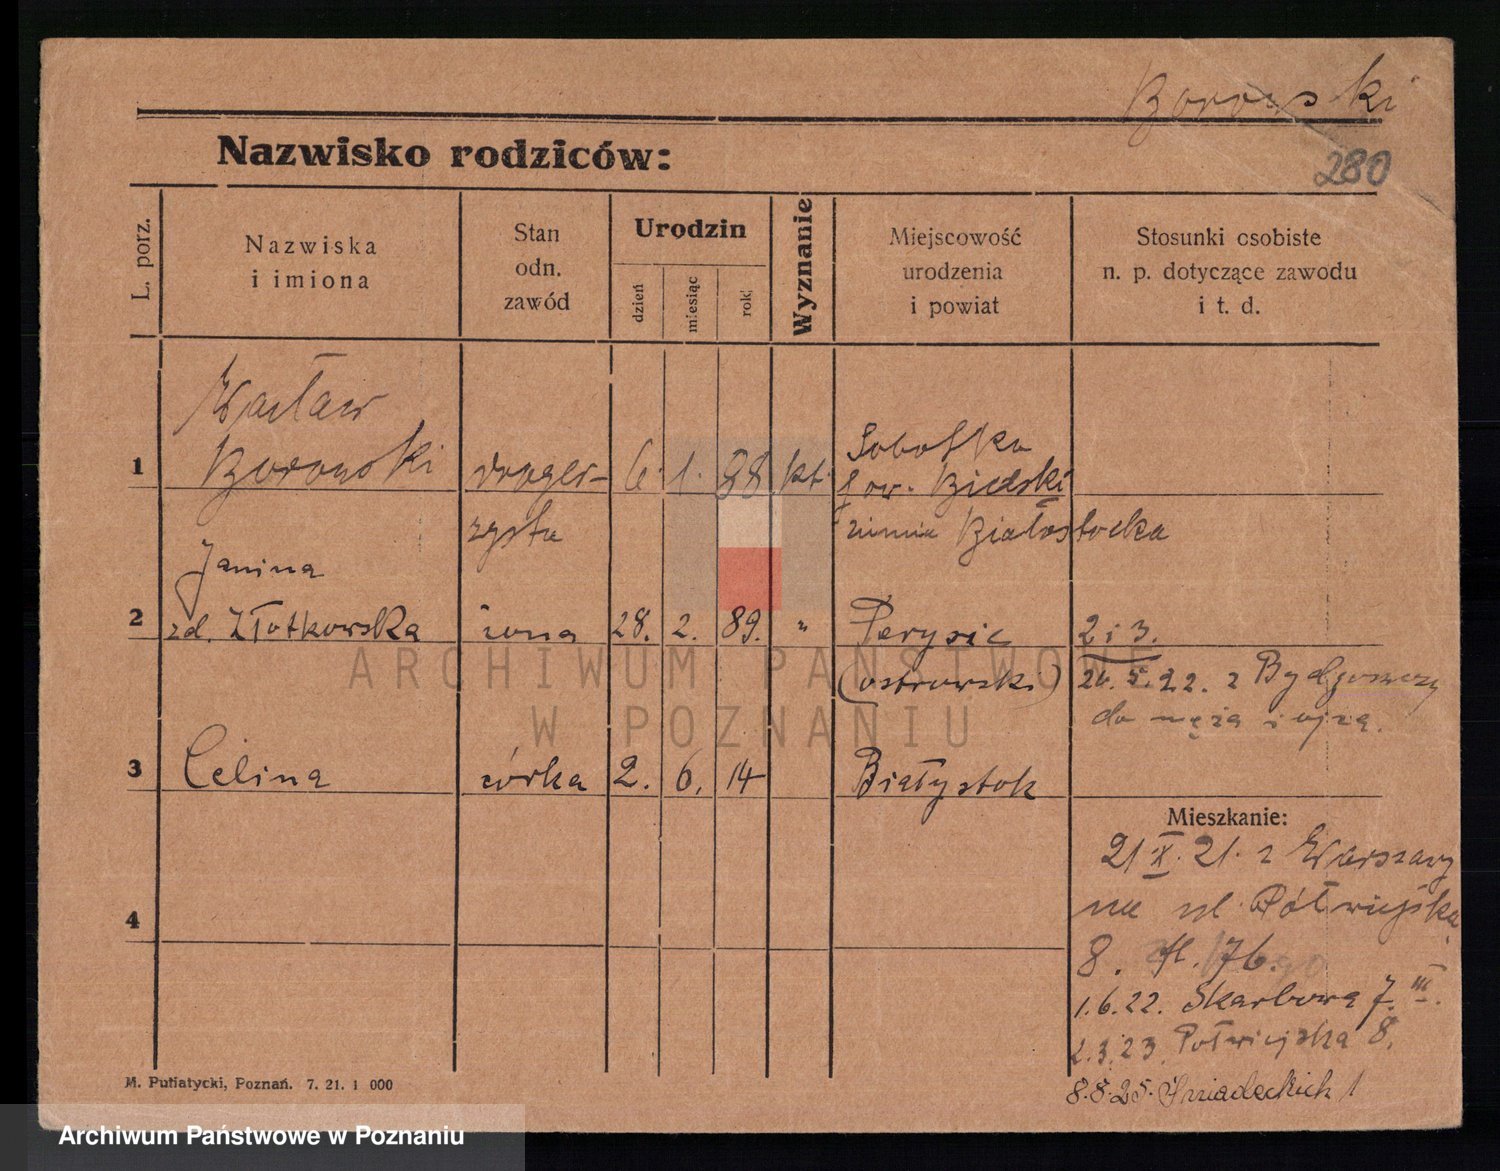 Borowski
280
Nazwisko rodziców:
L. porz.
Nazwiska
i imiona
Stan
odn.
zawód
Urodzin
dzień
miesiąc
rok
Wyznanie
Miejscowość
urodzenia
i powiat
Stosunki osobiste
n. p. dotyczące zawodu
i t. d.
Wacław
1 Borowski drogie- 6. 1. 98 kt. Sobotka
pow. Bielski
rzysta ziemia Białostocka
Janina
2 zd. Złotkowska żona 28. 2. 89. " Perysie 2 i 3.
(ostrowski) 26.5.22. z Bydgoszczy
do męża i ojca.
3 Celina córka 2. 6. 14 Białystok
Mieszkanie:
21 X. 21. z Warszawy
4 na ul. Półwiejska
8. 76.
1.6.22. Skarbowa 7. III.
2.3.23. Półwiejska 8.
8.8.25. Śniadeckich 1
M. Putiatycki, Poznań. 7. 21. 1 000
ARCHIWUM PAŃSTWOWE
W POZNANIU
Archiwum Państwowe w Poznaniu